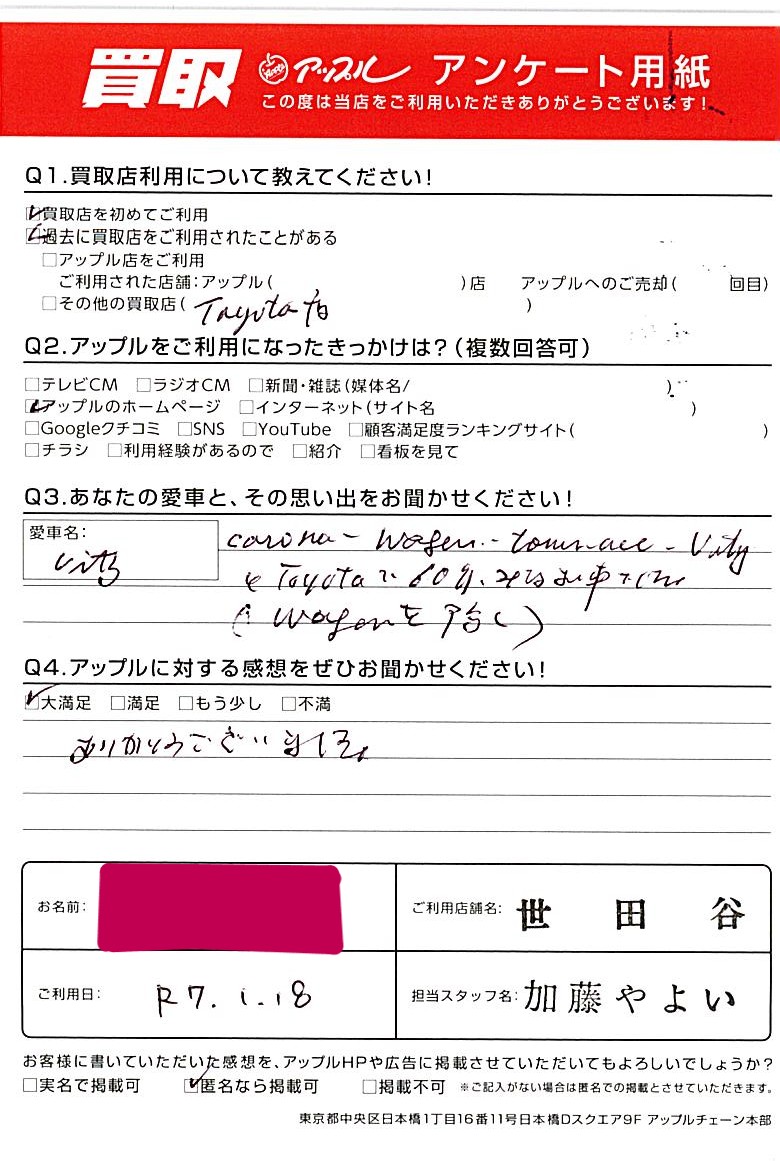 買取 アップル アンケート用紙
この度は当店をご利用いただきありがとうございます!
Q1.買取店利用について教えてください!
☑買取店を初めてご利用
☑過去に買取店をご利用されたことがある
□アップル店をご利用
ご利用された店舗:アップル( )店 アップルへのご売却( 回目)
□その他の買取店( Toyota )
Q2.アップルをご利用になったきっかけは?(複数回答可)
□テレビCM □ラジオCM □新聞・雑誌(媒体名/ )
☑アップルのホームページ □インターネット(サイト名 )
□Googleクチコミ □SNS □YouTube □顧客満足度ランキングサイト( )
□チラシ □利用経験があるので □紹介 □看板を見て
Q3.あなたの愛車と、その思い出をお聞かせください!
愛車名:
Vitz
carina - Wagen - - Vitz
Toyota 60
( Wagenを除く)
Q4.アップルに対する感想をぜひお聞かせください!
☑大満足 □満足 □もう少し □不満
ありがとうございました。
お名前:
ご利用店舗名: 世田谷
ご利用日: R7.1.18
担当スタッフ名: 加藤やよい
お客様に書いていただいた感想を、アップルHPや広告に掲載させていただいてもよろしいでしょうか?
□実名で掲載可 ☑匿名なら掲載可 □掲載不可 ※ご記入がない場合は匿名での掲載とさせていただきます。
東京都中央区日本橋1丁目16番11号日本橋Dスクエア9F アップルチェーン本部